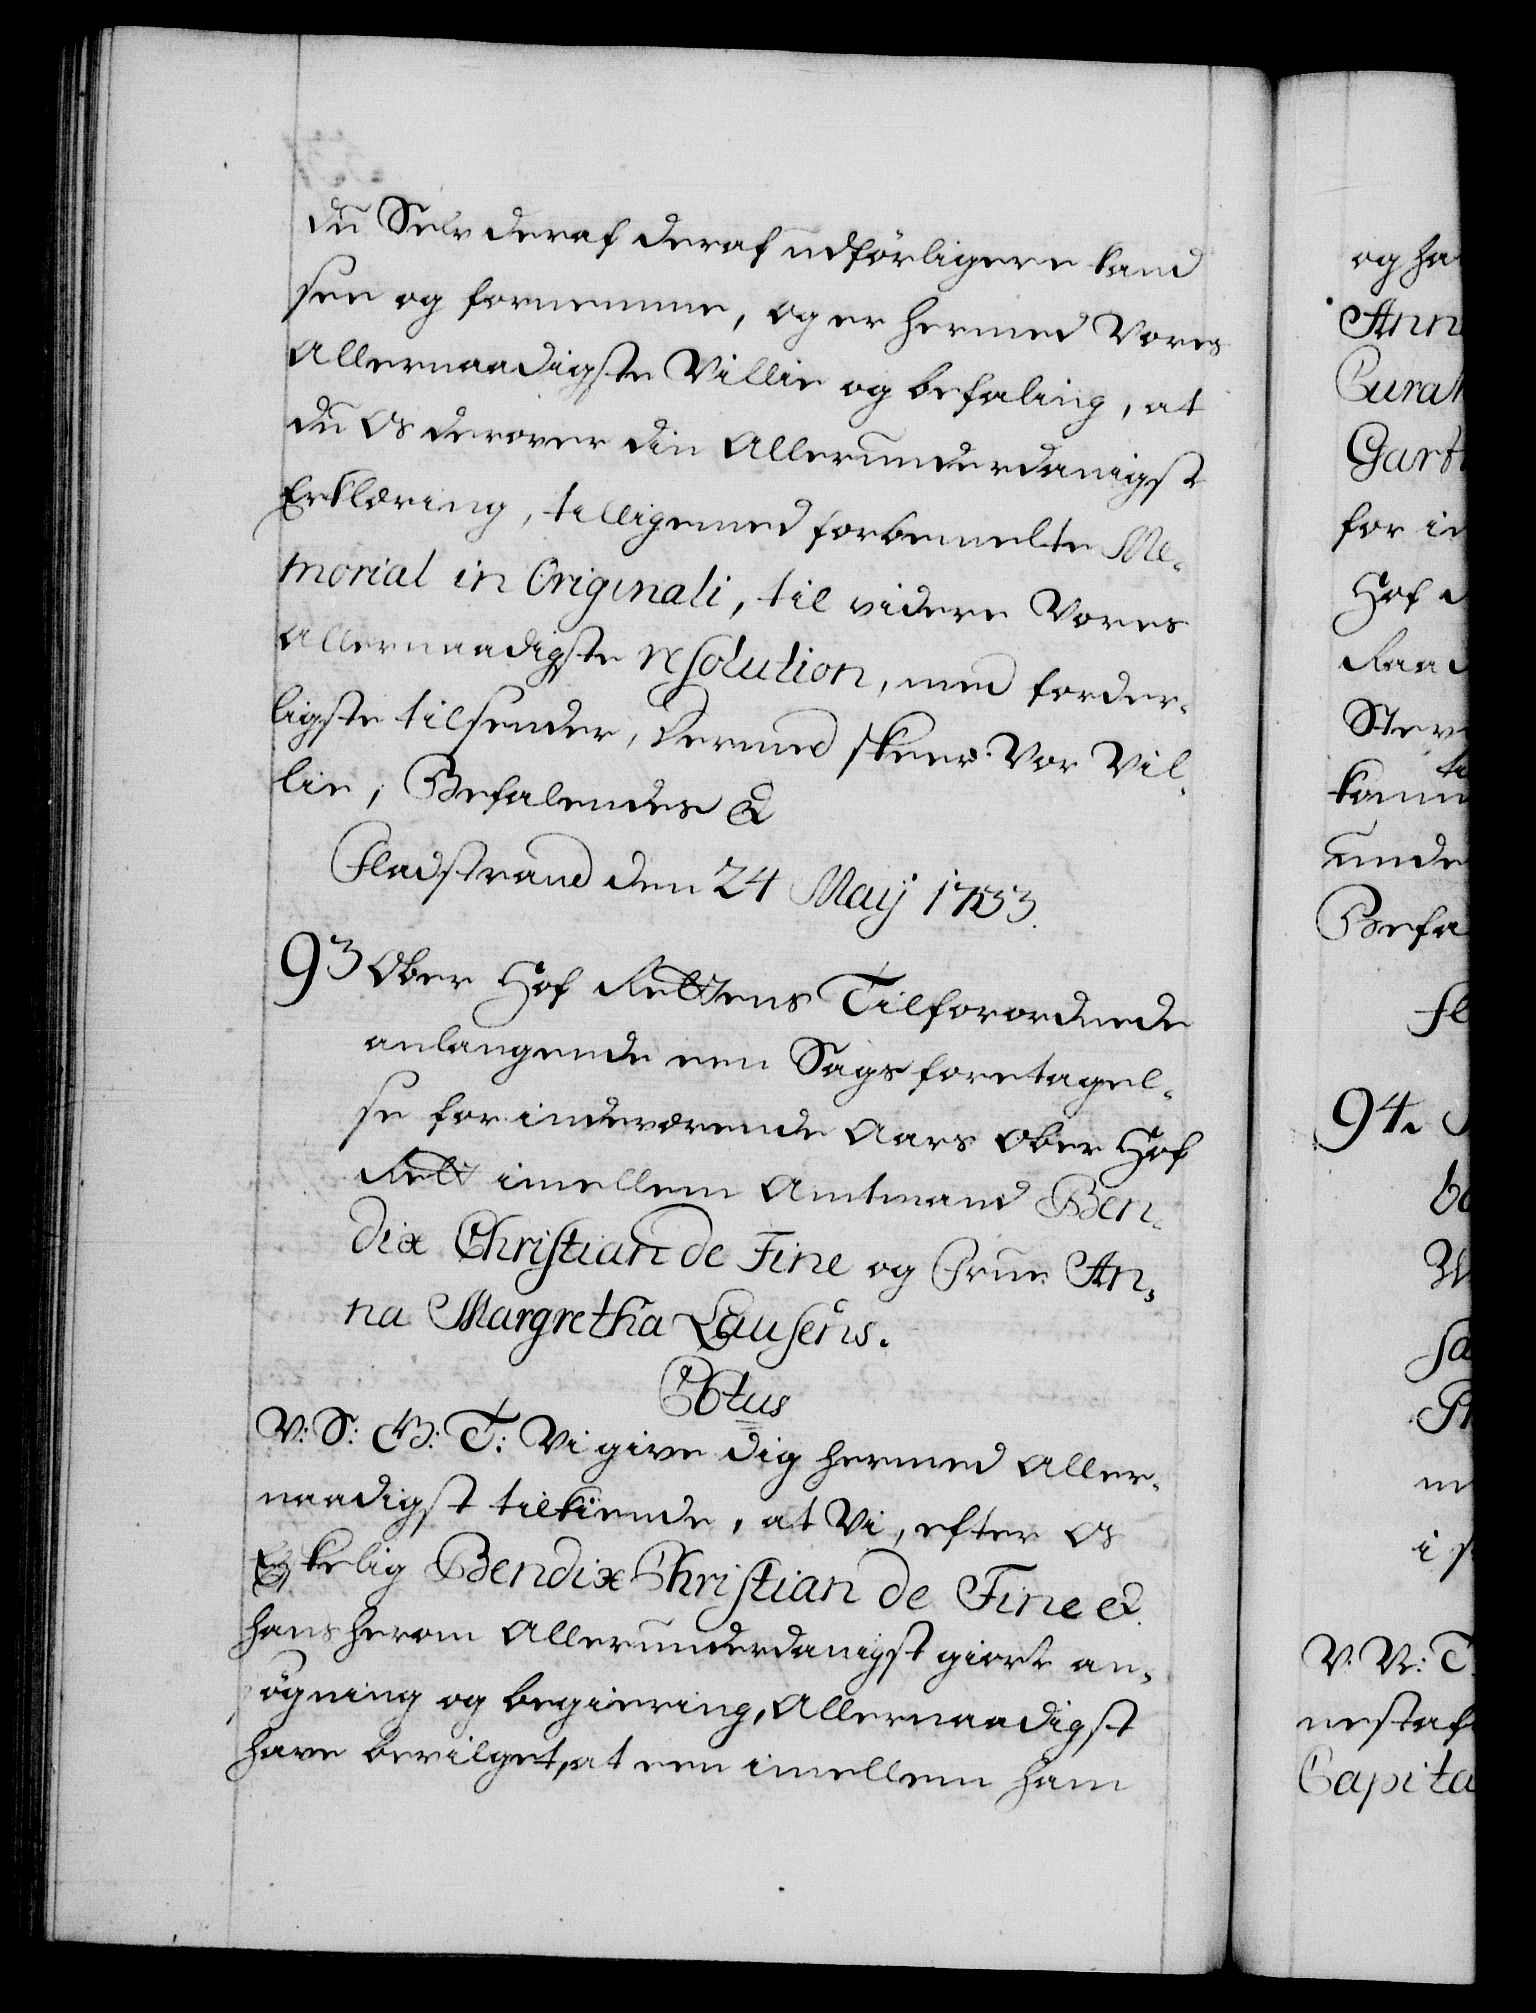 du Selv deraf deraf udförligere kand
see og fornemme, og er hermed Vores
Allernaadigste Villie og befaling, at
du Os derover din Allerunderdanigst
Erklæring, tilligemed forbemelte Me-
morial in Originali, til videre Vores
Allernaadigste resolution, med forder-
ligste tilsender, dermed skeer Vor Vil-
lie, Befalendes &
Fladstrand den 24 Maij 1733.
93 Ober Hof Rettens Tilforordnede
anlangende een Sags foretagel-
se for indeværende Aars Ober Hof
Rett imellem Amtmand Ben-
dix Christian de Fine og Frue An-
na Margretha Lausens.
Potus
V: S: G: T: Vi give dig hermed Aller-
naadigst tilkiende, at Vi, efter Os
Elskelig Bendix Christian de Fine &.
hans herom Allerunderdanigst giorte an-
søgning og begiering, Allernaadigst
have bevilget, at een imellem ham
og ha
Ann
Curat
Gart
for in
Hof
Raad
Stev
komm
unde
Befa
Fl
94.
V. V: T
nestaf
Capita